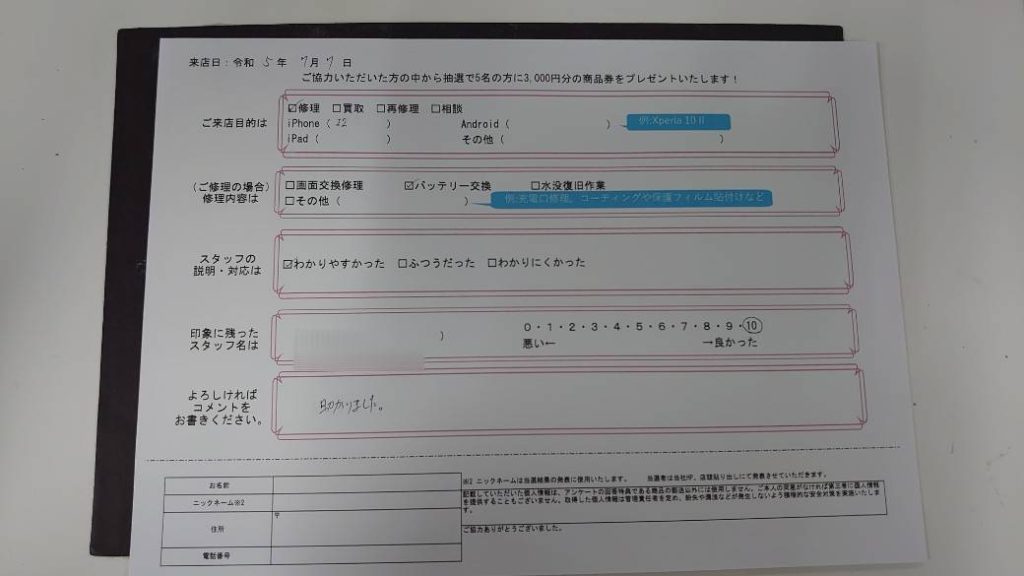 来店日：令和 5 年 7月 7 日
ご協力いただいた方の中から抽選で5名の方に3,000円分の商品券をプレゼントいたします！
ご来店目的は
☑修理 □買取 □再修理 □相談
iPhone ( 12 ) Android ( ) 例:Xperia 10Ⅱ
iPad ( ) その他 ( )
(ご修理の場合)
修理内容は
□画面交換修理 ☑バッテリー交換 □水没復旧作業
□その他 ( ) 例:充電口修理、コーティングや保護フィルム貼付けなど
スタッフの
説明・対応は
☑わかりやすかった □ふつうだった □わかりにくかった
印象に残った
スタッフ名は
)
0・1・2・3・4・5・6・7・8・9・10
悪い← →良かった
よろしければ
コメントを
お書きください。
助かりました。
お名前
ニックネーム※2
住所
〒
電話番号
※2 ニックネームは当選結果の発表に使用いたします。 当選者は当社HP、店頭貼り出しにて発表させていただきます。
記載していただいた個人情報は、アンケートの回答特典である商品の郵送以外には使用しません。ご本人の同意がなければ第三者に個人情報
を提供することもございません。取得した個人情報は管理責任者を定め、紛失や漏洩などが発生しないよう積極的な安全対策を実施いたしま
す。
ご協力ありがとうございました。